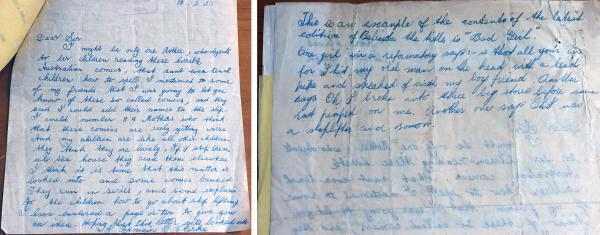 18.2.55
Dear Sir
I might be only one Mother, who objects
to her children reading these horrible
Australian comics, that cant even teach
children how to spell. I mentioned to some
of my friends that I was going to let you
know of these so called comics, and they
said I could add their names to the slip.
I could number 89 Mothers who think
that these comics are really getting worse
And my children are like all other children
they think they are lovely. If I stop them
into the house they read them elsewhere
I think it is time that this matter is
looked into and some comics banned
They run in series, and some explains
to the children how to go about shop lifting
I have enclosed a page or two to give you
an idea. Hoping that this letter gets looked into
I Remain
This is an example of the contents of the latest
edition of Belinda the title is "Bad Girl."
One girl in a reformatory says:- is that all your in
for I hit my old man on the head with a lead
pipe and sneaked off with my boy friend. Another
says Oh I broke into three big stores before some
rat pimped on me. Another one says Dad was
a shoplifter and so on.